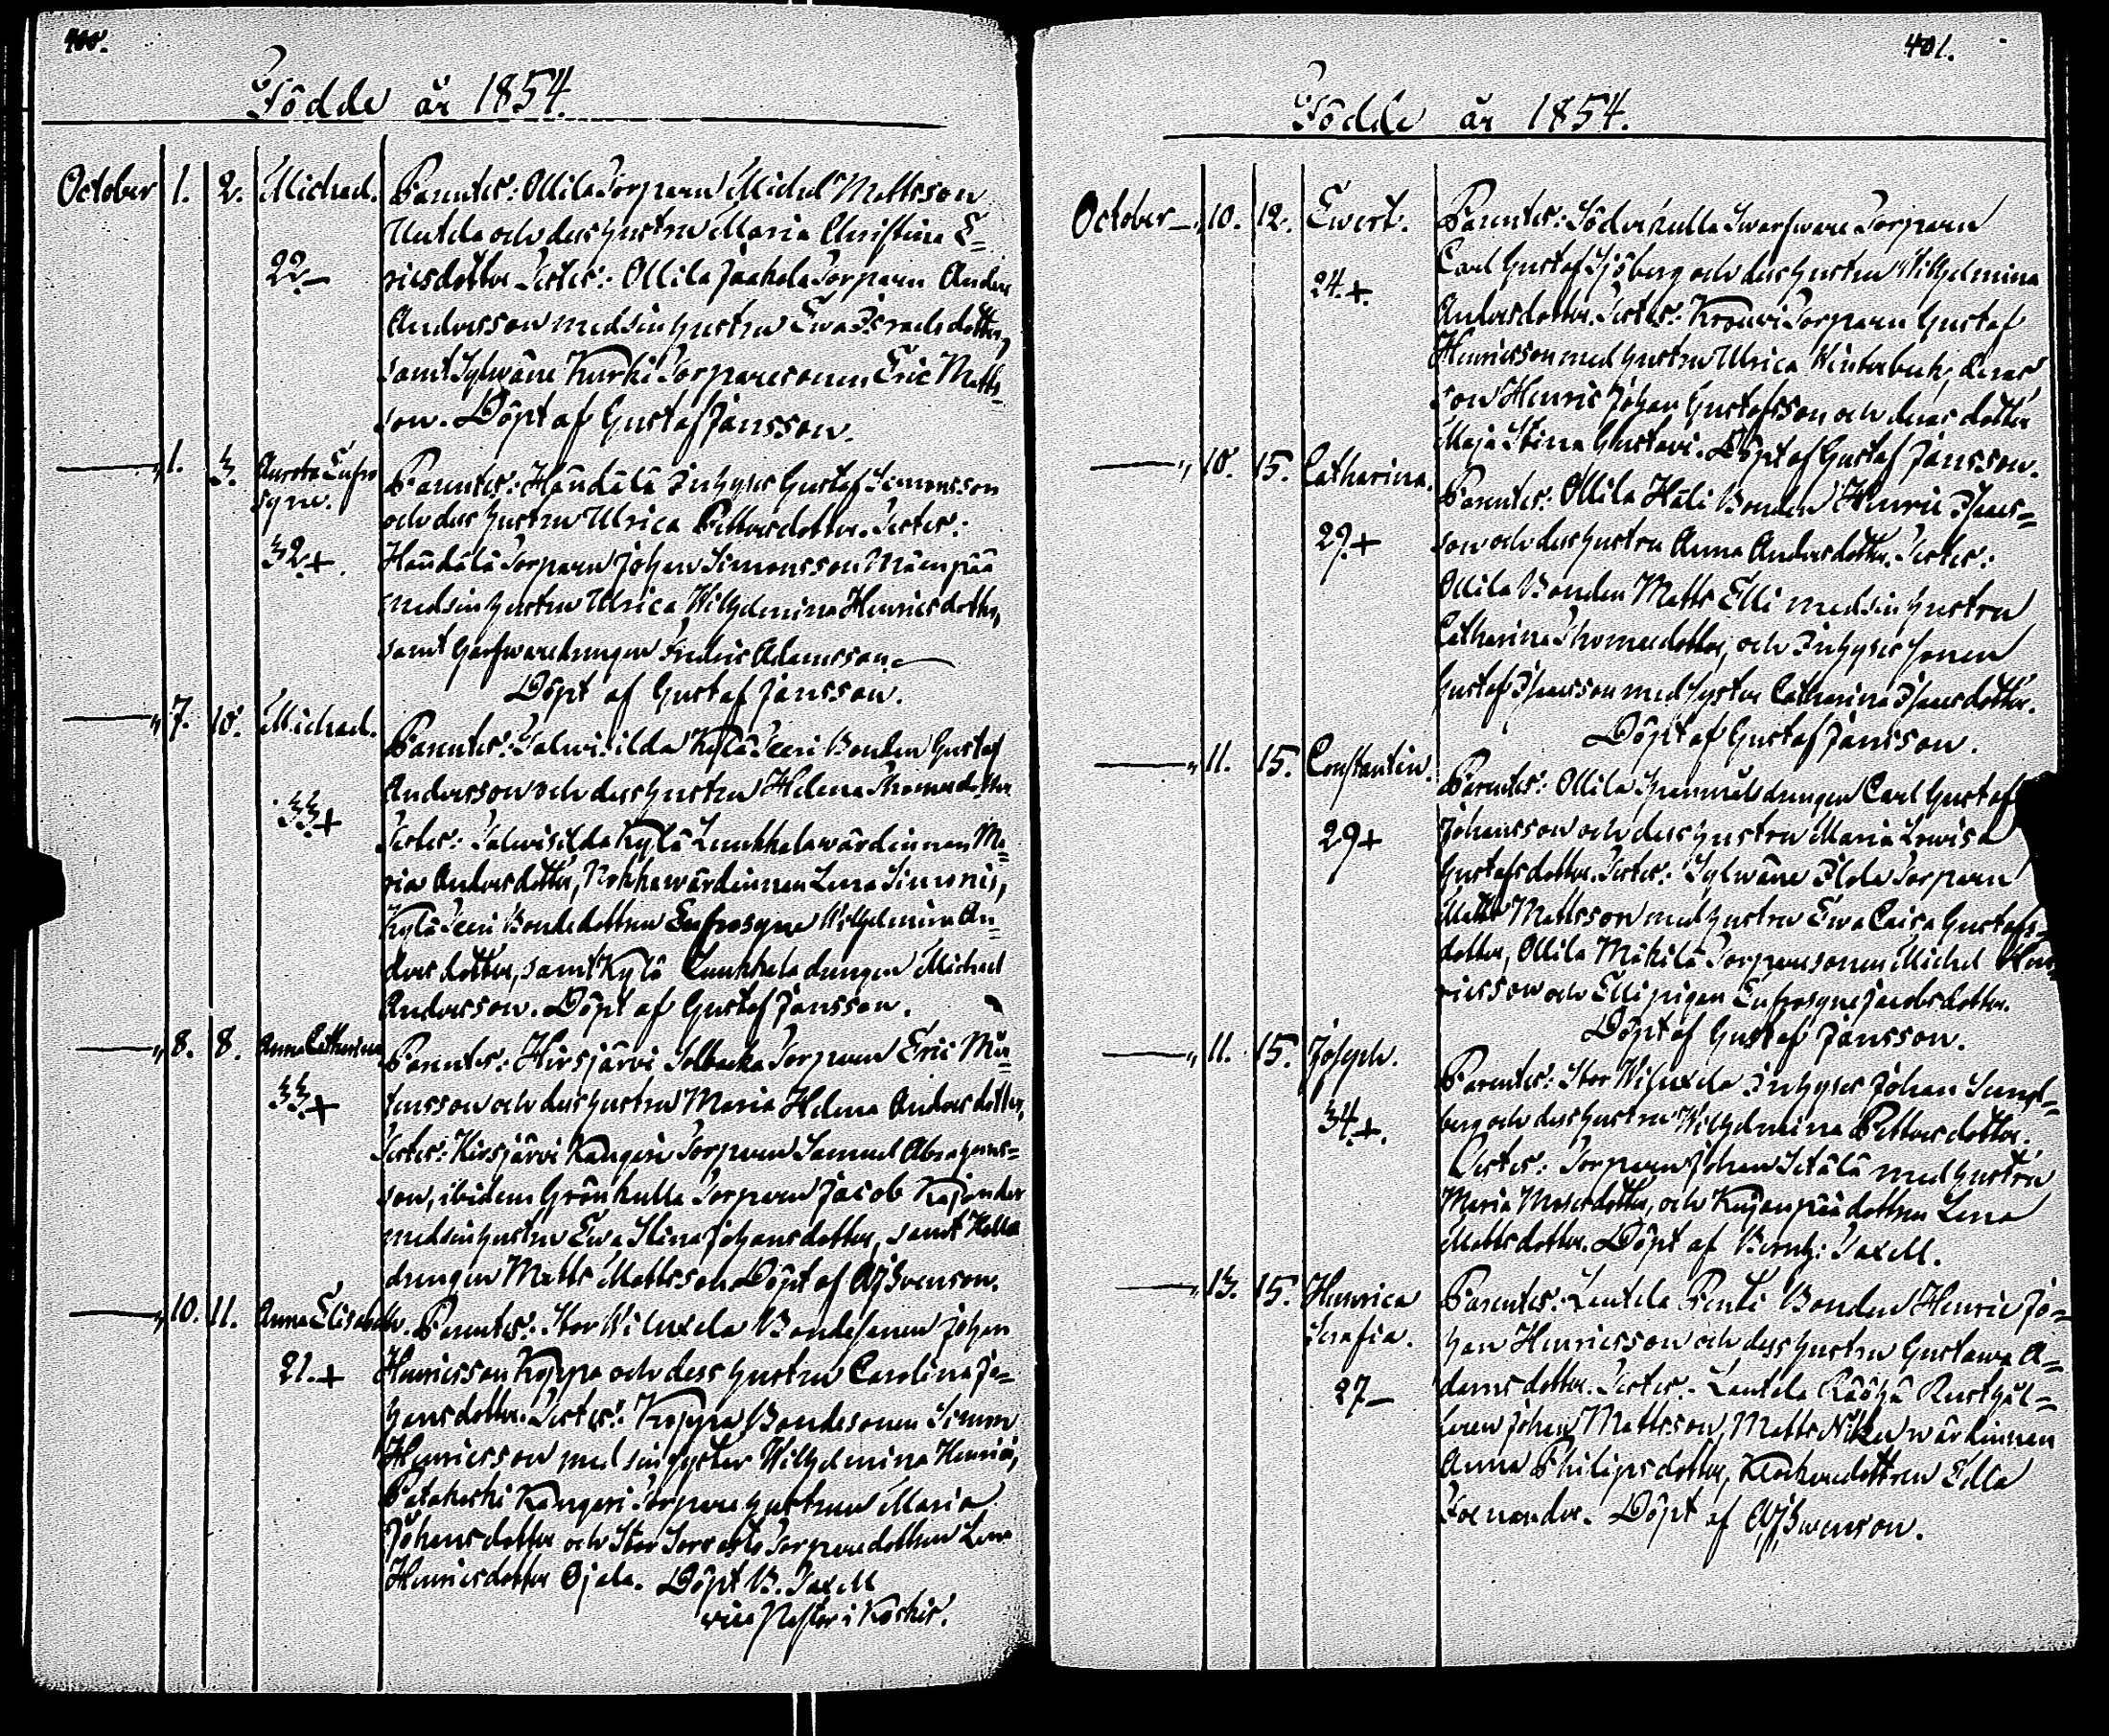 400.
Födde år 1854.
October 1. 2. Michael. Parentes: Ollila Torparen Michel Mattsson
Uutela och dess hustru Maria Christina E=
22.— ricsdotter Testes: Ollila Jaakola Torparen Anders
Andersson med sin hustru Ewa Israelsdotter,
samt Sylwäne Kurki Torparesonen Eric Matts=
son. Döpt af Gustaf Jansson.
— „ 1. 3. Aurora Eufro
syne. Parentes: Händälä Inhyses Gustaf Simonsson
och dess hustru Ulrica Pettersdotter. Testes:
32.+. Händälä Torparen Johan Simonsson Mäenpää
med sin hustru Ulrica Wilhelmina Henricsdotter,
samt Garfwaredrängen Fredric Adamsson.—
Döpt af Gustaf Jansson.
— „ 7. 10. Michael. Parentes: Talwisilda Kylä Seeri Bonden Gustaf
Andersson och dess hustru Helena Thomasdotter
33+ Testes: Talwisilda Kylä Luukkala wärdinnan Ma=
ria Andersdotter, Nokka wärdinnan Lena Simonis,
Kylä Seeri Bondedottren Eufrosyne Wilhelmina An=
dersdotter, samt Kylä Luukkala drängen Michael
Andersson. Döpt af Gustaf Jansson.
— „ 8. 8. Anna Catharina Parentes: Hirsjärvi Solbacka Torparen Eric Mår=
33.+ tensson och dess hustru Maria Helena Andersdotter,
Testes: Hirsjärvi Kangari Torparen Samuel Abrahams=
son, ibidem Grönkulla Torparen Jacob Kajander
med sin hustru Ewa Stina Johansdotter, samt
drängen Matts Mattsson. Döpt af AJSvenson.
— „ 10. 11. Anna Elisabeth. Parentes: Stor Wiluxela Bondesonen Johan
21.+ Henricsson Koppa och dess hustru Carolina Jo=
hansdotter. Testes: Koppa Bondesonen Simon
Henricsson med sin syster Wilhelmina Henrici,
Patakoski Kangari Torpare hustrun Maria
Johansdotter och Stor Sorvasto Torparedottren Lena
Henricsdotter Ojala. Döpt B. Taxell
vice Pastor i Koskis.
401.
Födde år 1854.
October — „ 10. 12. Ewert. Parentes: Söderkulla Swarfware Torparen
Carl Gustaf Sjöberg och dess hustru Wilhelmina
24.+. Andersdotter. Testes: Krouvi Torparen Gustaf
Henricsson med hustru Ulrica Winterbeck, deras
son Henric Johan Gustafsson och deras dotter
Maja Stina Gustavi. Döpt af Gustaf Jansson.
— „ 10. 15. Catharina. Parentes: Ollila Häli Bonden Henric Isaes=
29.+ son och dess hustru Anna Andersdotter. Testes:
Ollila Bonden Matts Elli med sin hustru
Catharina Thomasdotter, och Inhyses sonen
Gustaf Isaesson med syster Catharina Isaesdotter.
Döpt af Gustaf Jansson.
— „ 11. 15. Constantin. Parentes: Ollila Spannmåls drängen Carl Gustaf
29+ Johansson och dess hustru Maria Lowisa
Gustafsdotter. Testes: Sylwäne Ilola Torparen
Matts Mattsson med hustru Ewa Caisa Gustafs=
dotter, Ollila Mäkilä Torparesonen Michel Hen
ricsson och Elli pigan Eufrosyne Jacobsdotter.
Döpt af Gustaf Jansson.
— „ 11. 15. Joseph. Parentes: Stor Wiluxela Inhyses Johan Sund=
34.+. berg och dess hustru Wilhelmina Pettersdotter.
Testes: Torparen Johan Setälä med hustru
Maria Mosesdotter, och Kujanpää dottren Lena
Mattsdotter. Döpt af Berndt: Taxell.
— „ 13. 15. Henrica
Serafia. Parentes: Lautela Pentti Bonden Henric Jo=
han Henricsson och dess hustru Gustawa A=
27— damsdotter. Testes: Lautela Rusthål=
laren Johan Mattsson, Matts wärdinnan
Anna Philipsdotter, Klockaredottren Edla
Foenander. Döpt af AJSvenson.